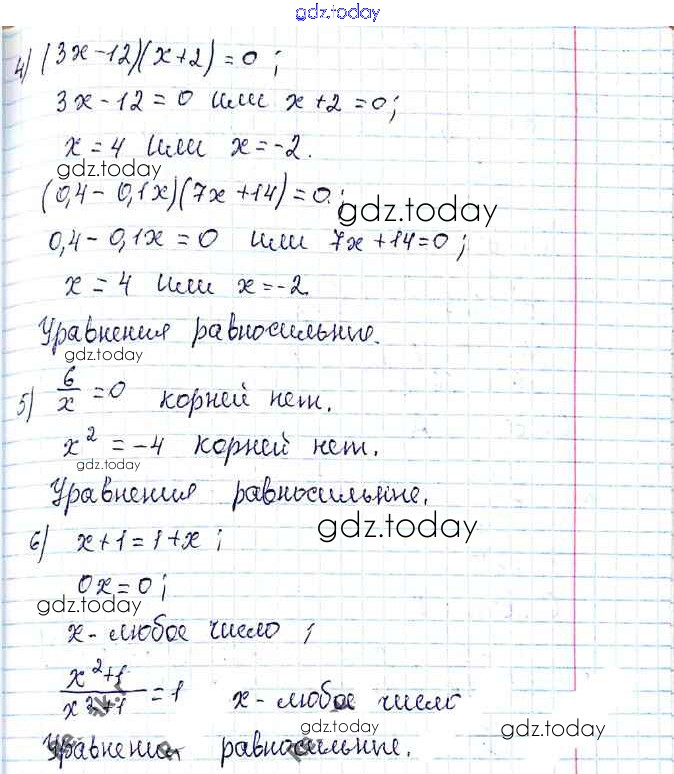 gdz.today
4) (3x-12)(x+2)=0;
3x-12=0 или x+2=0;
x=4 или x=-2.
gdz.today
(0,4-0,1x)(7x+14)=0;
gdz.today
0,4-0,1x=0 или 7x+14=0;
x=4 или x=-2.
Уравнения равносильные.
gdz.today
5) 6/x=0 корней нет.
x²=-4 корней нет.
gdz.today
Уравнения равносильные.
gdz.today
6) x+1=1+x;
0x=0;
gdz.today
x-любое число;
(x²+1)/(x²+1)=1 x-любое число
gdz.today
gdz.today
Уравнения равносильные.